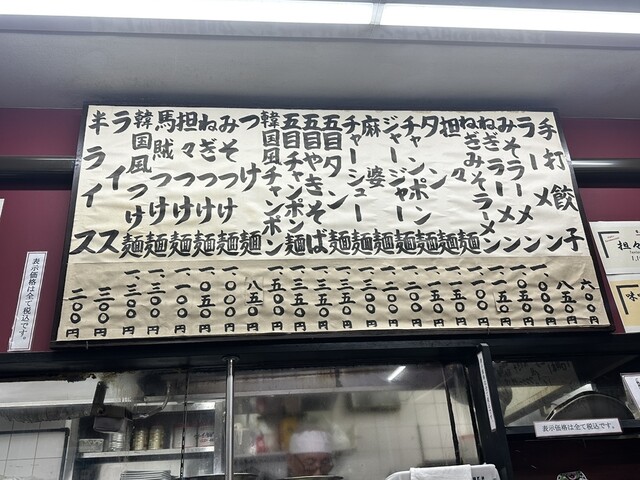 手打餃子 六〇〇円
ラーメン 八五〇円
みそラーメン 一、〇〇〇円
ねぎラーメン 一、〇五〇円
ねぎみそラーメン
担々麺 一、一〇〇円
タン麺 一、一五〇円
チャンポン麺 一、一五〇円
ジャージャー麺 一、一〇〇円
麻婆麺 一、二〇〇円
チャーシュー麺 一、三〇〇円
五目タン麺 一、三五〇円
五目やきそば 一、三五〇円
五目チャンポン麺 一、三五〇円
韓国風チャンポン 一、五〇〇円
つけ麺 八五〇円
みそつけ麺 一、〇〇〇円
ねぎつけ麺 一、〇五〇円
担々つけ麺 一、一〇〇円
馬賊つけ麺 一、三〇〇円
韓国風つけ麺 一、三〇〇円
ライス 三〇〇円
半ライス 二〇〇円
表示価格は全て税込です。
担々
味
表示価格は全て税込です。